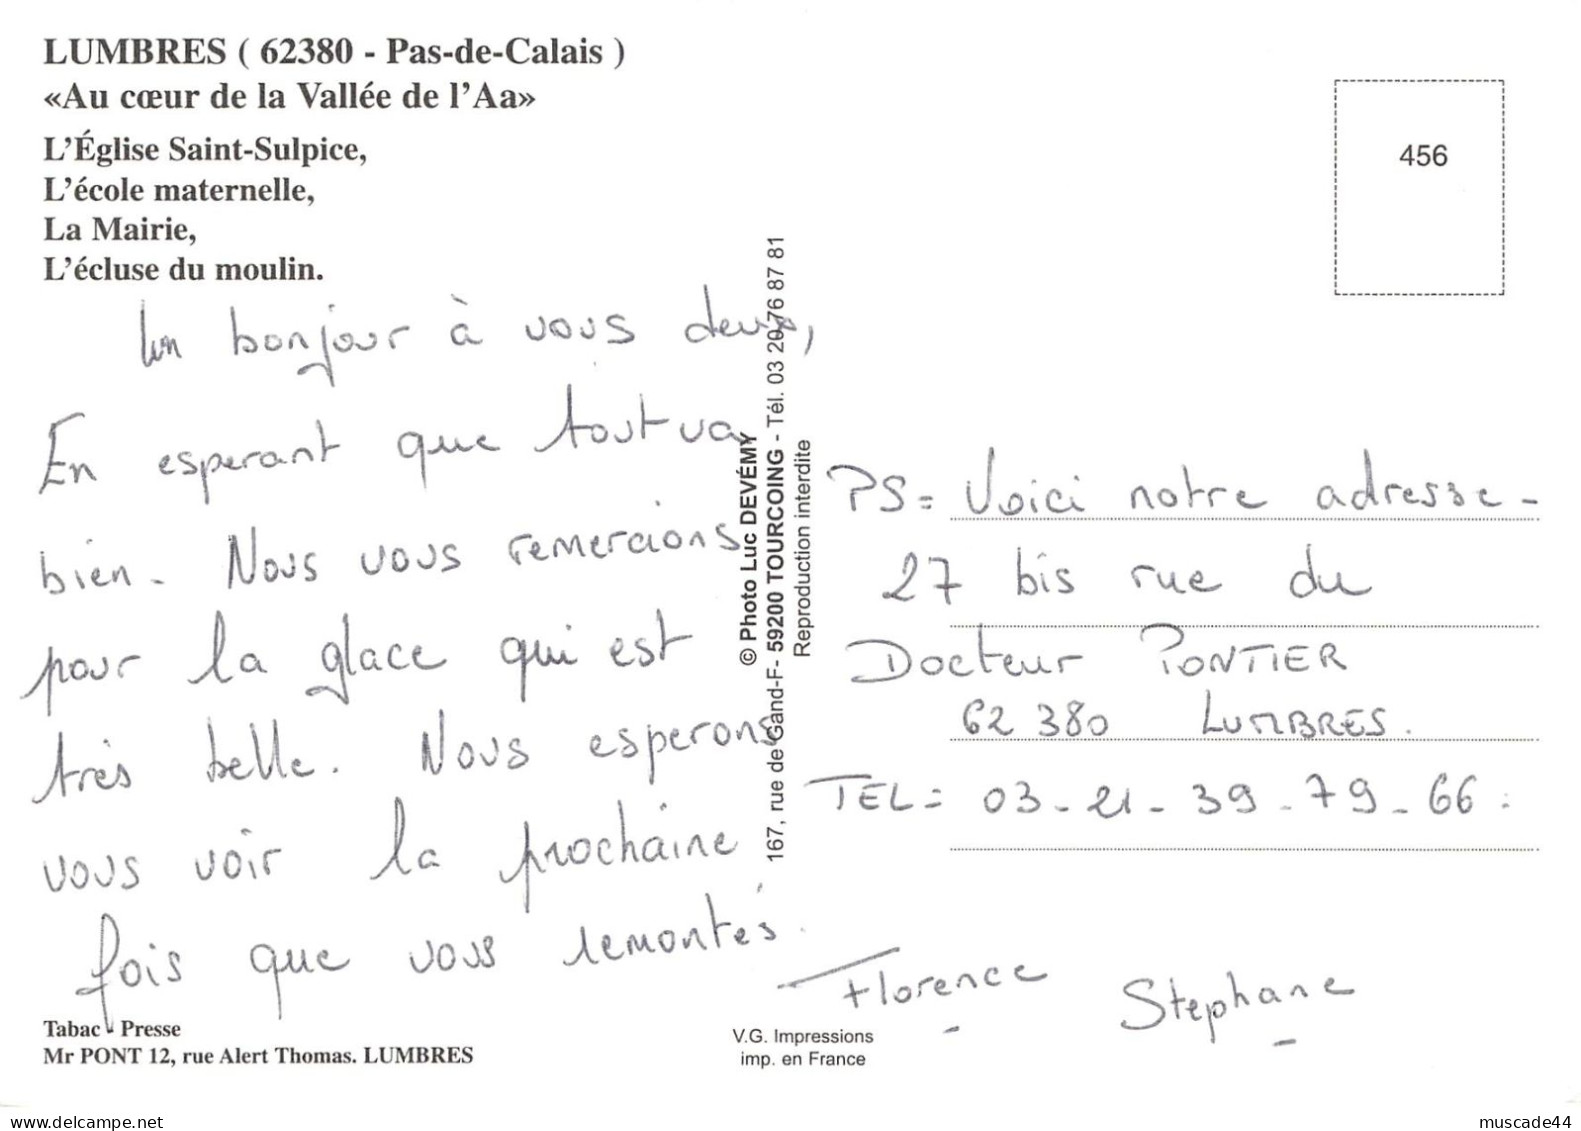 LUMBRES ( 62380 - Pas-de-Calais )
«Au cœur de la Vallée de l'Aa»
L'Église Saint-Sulpice,
L'école maternelle,
La Mairie,
L'écluse du moulin.
456
Un bonjour à vous deux,
En esperant que tout va
bien. Nous vous remercions
pour la glace qui est
très belle. Nous esperons
vous voir la prochaine
fois que vous remontés.
Florence Stephane
© Photo Luc DEVÉMY
167, rue de Gand-F- 59200 TOURCOING - Tél. 03 20 76 87 81
Reproduction interdite
PS = Voici notre adresse -
27 bis rue du
Docteur PONTIER
62 380 LUMBRES.
TEL = 03 - 21 - 39 - 79 - 66 :
Tabac - Presse
Mr PONT 12, rue Alert Thomas. LUMBRES
V.G. Impressions
imp. en France
muscade44